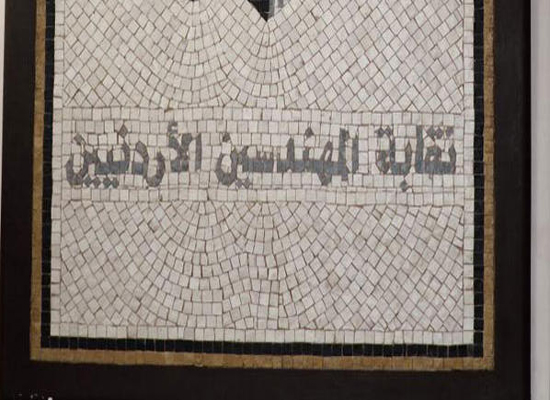 نقابة المهندسين الأردنيين